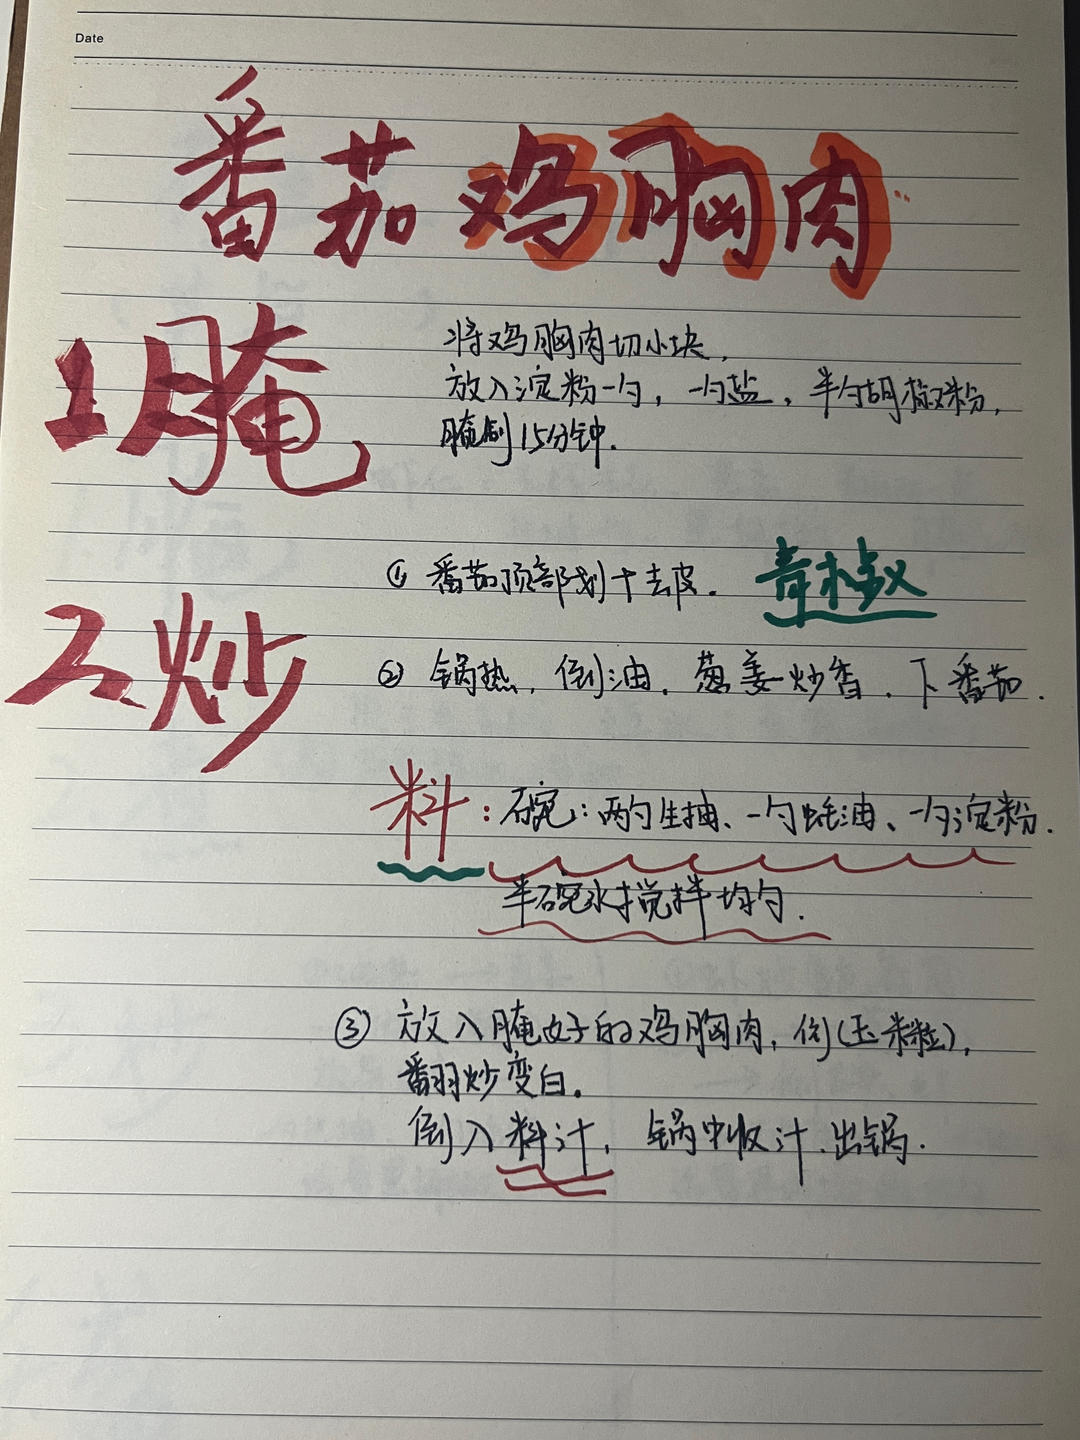 Date
番茄鸡胸肉
1.腌
将鸡胸肉切小块,
放入淀粉一勺, 一勺盐, 半勺胡椒粉,
腌制15分钟.
① 番茄顶部划十去皮. 青椒
2.炒
② 锅热, 倒油, 葱姜炒香, 下番茄.
料:碗:两勺生抽、一勺蚝油、一勺淀粉.
半碗水搅拌均匀.
③ 放入腌好的鸡胸肉, 倒(玉米粒),
翻炒变白.
倒入料汁, 锅中收汁, 出锅.